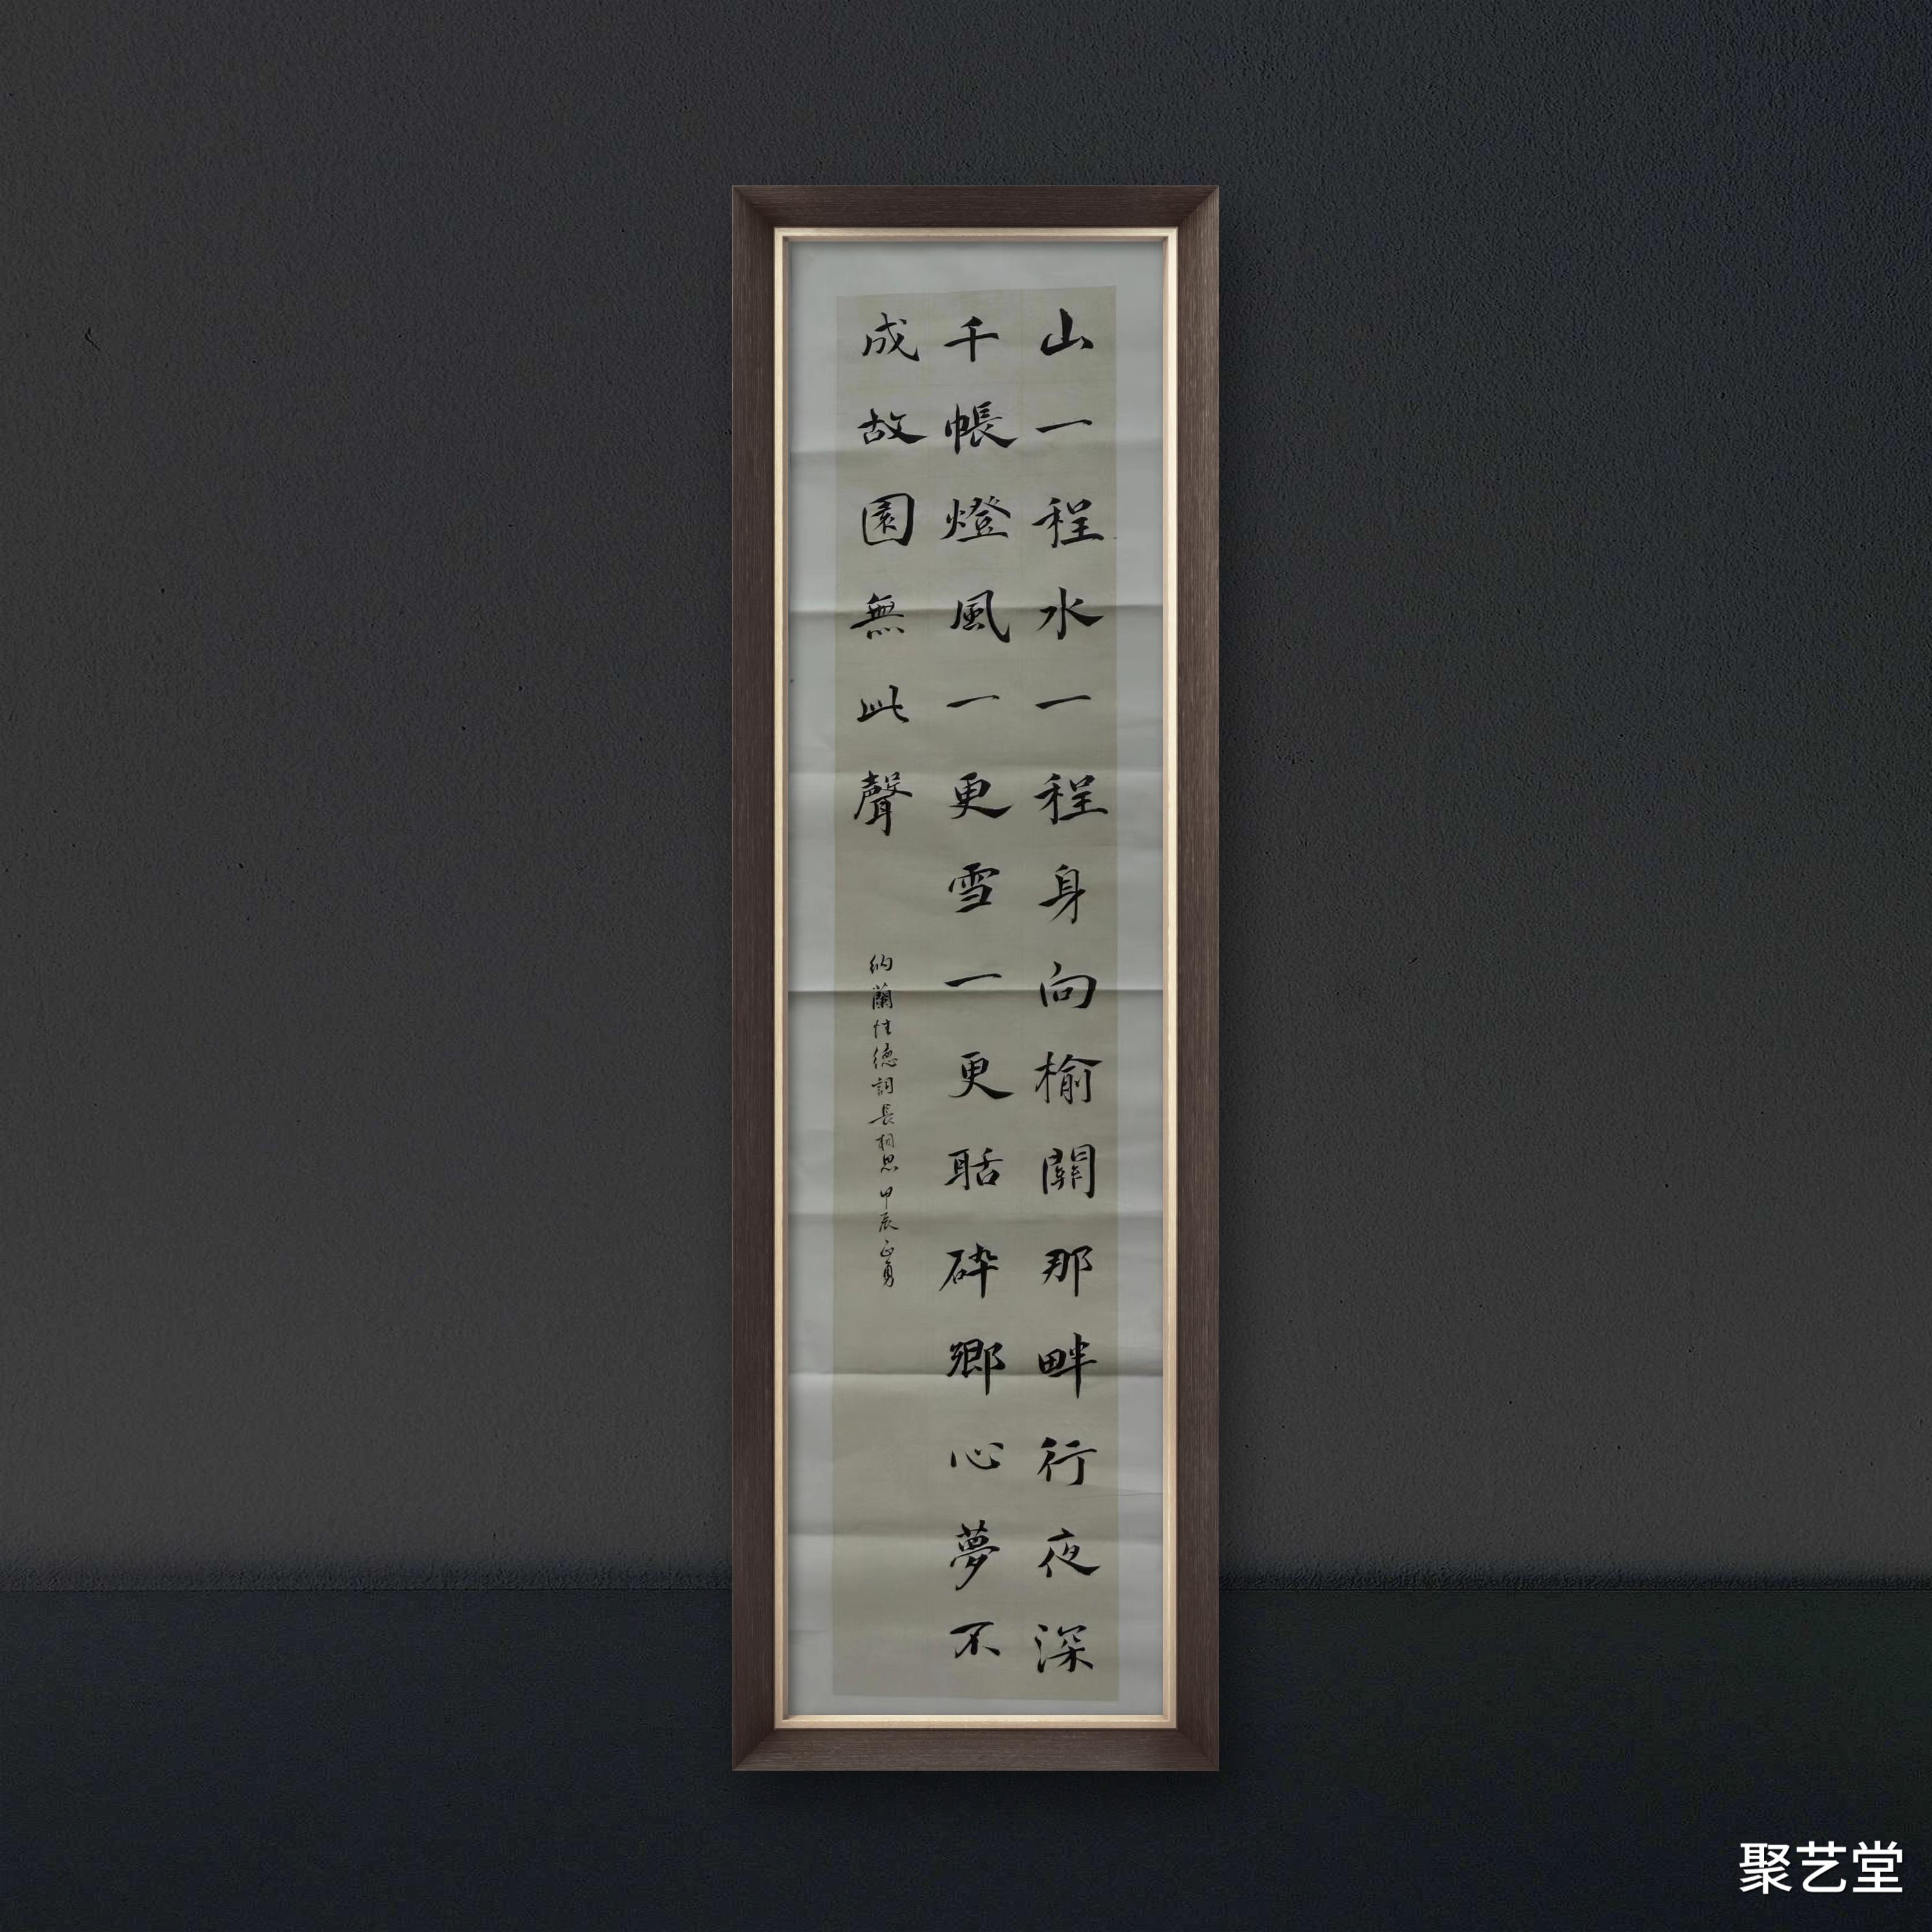 山一程水一程身向榆關那畔行夜深
千帳燈風一更雪一更聒碎鄉心夢不
成故園無此聲
納蘭性德詞長相思 甲辰正勇
聚艺堂